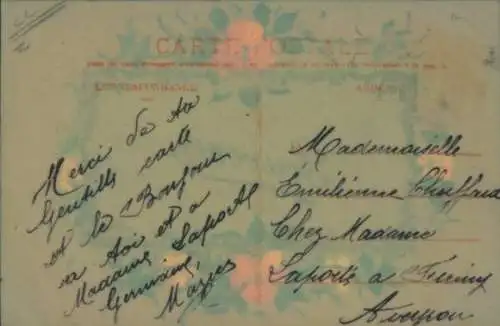 CARTE POSTALE
CORRESPONDANCE
ADRESSE
Merci de ta
Gentille carte
et le Bonjour
a toi et a
Madame Laporte
Germaine,
Mazars
Mademoiselle
Emilienne
Chez Madame
Laporte a Firmy
Aveyron